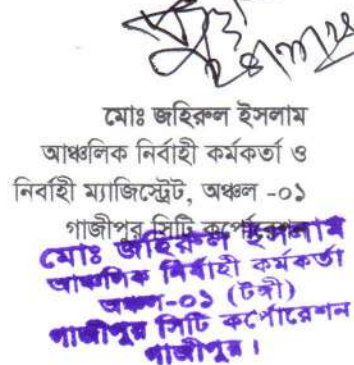 মোঃ জহিরুল ইসলাম
আঞ্চলিক নির্বাহী কর্মকর্তা ও
নির্বাহী ম্যাজিস্ট্রেট, অঞ্চল -০১
গাজীপুর সিটি কর্পোরেশন
মোঃ জহিরুল ইসলাম
আঞ্চলিক নির্বাহী কর্মকর্তা
অঞ্চল-০১ (টঙ্গী)
গাজীপুর সিটি কর্পোরেশন
গাজীপুর।